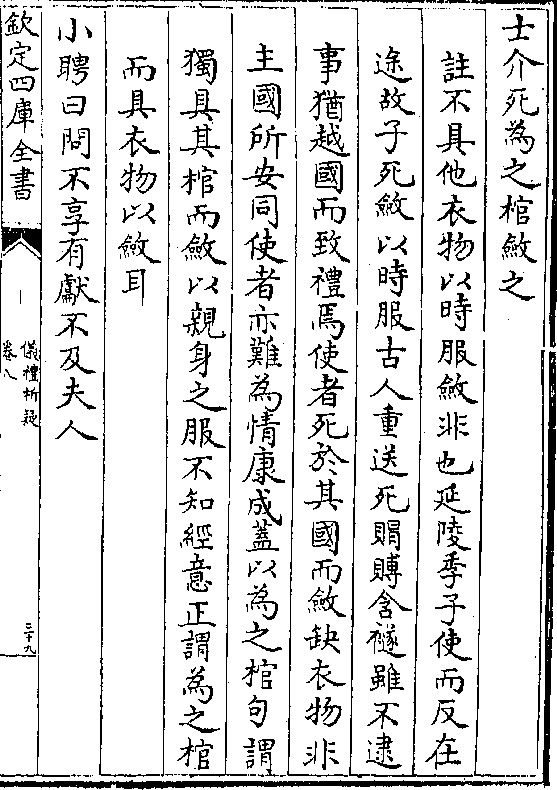 士介死為之棺斂之
註不具他衣物以時服斂非也延陵季子使而反在
途故子死斂以時服古人重送死賵賻含襚雖不逮
事猶越國而致禮焉使者死於其國而斂缺衣物非
主國所安同使者亦難為情康成蓋以為之棺句謂
獨具其棺而斂以親身之服不知經意正謂為之棺
而具衣物以斂耳
小聘曰問不享有獻不及夫人
欽定四庫全書
儀禮析疑
卷八
二十九